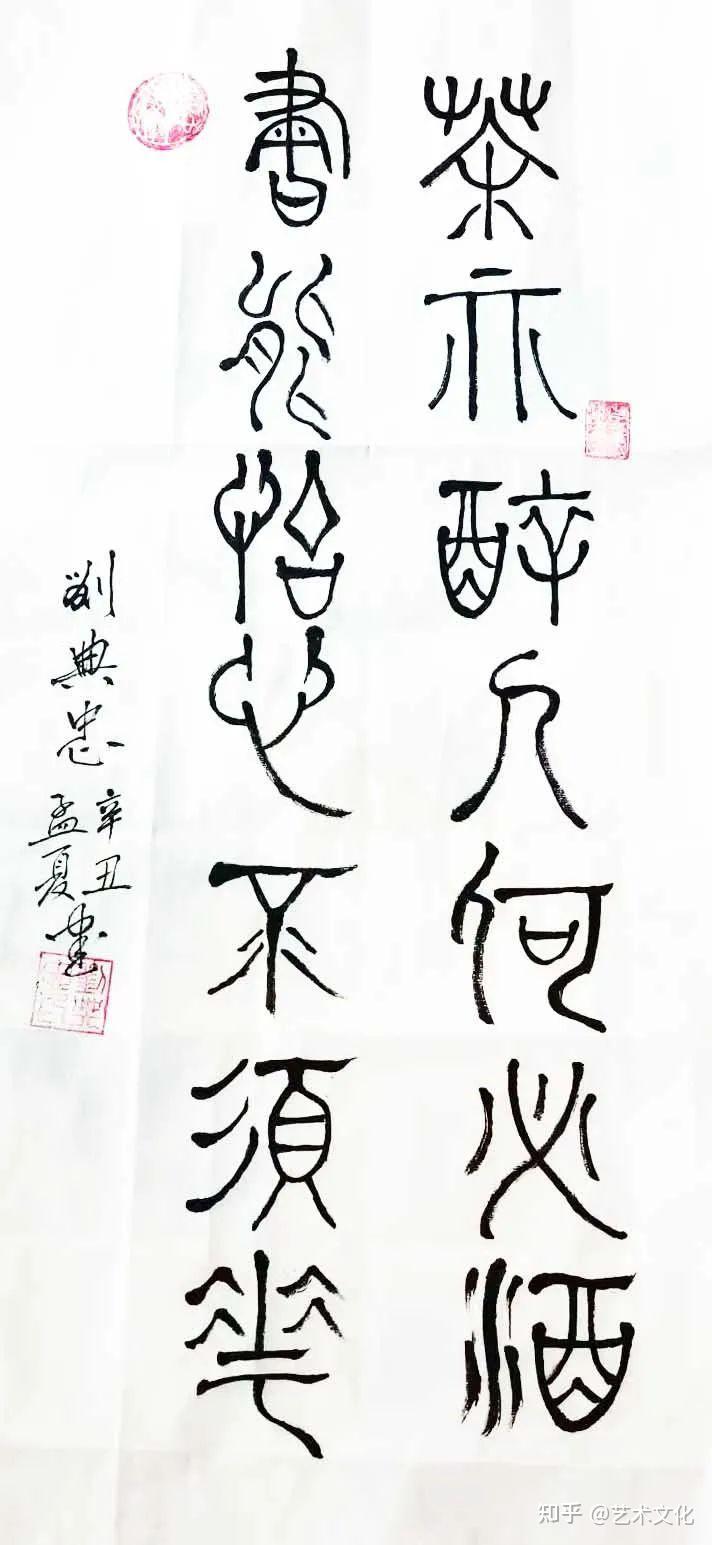 茶亦醉人何必酒
書能怡心不須花
劉典忠
辛丑
孟夏書
知乎 @艺术文化